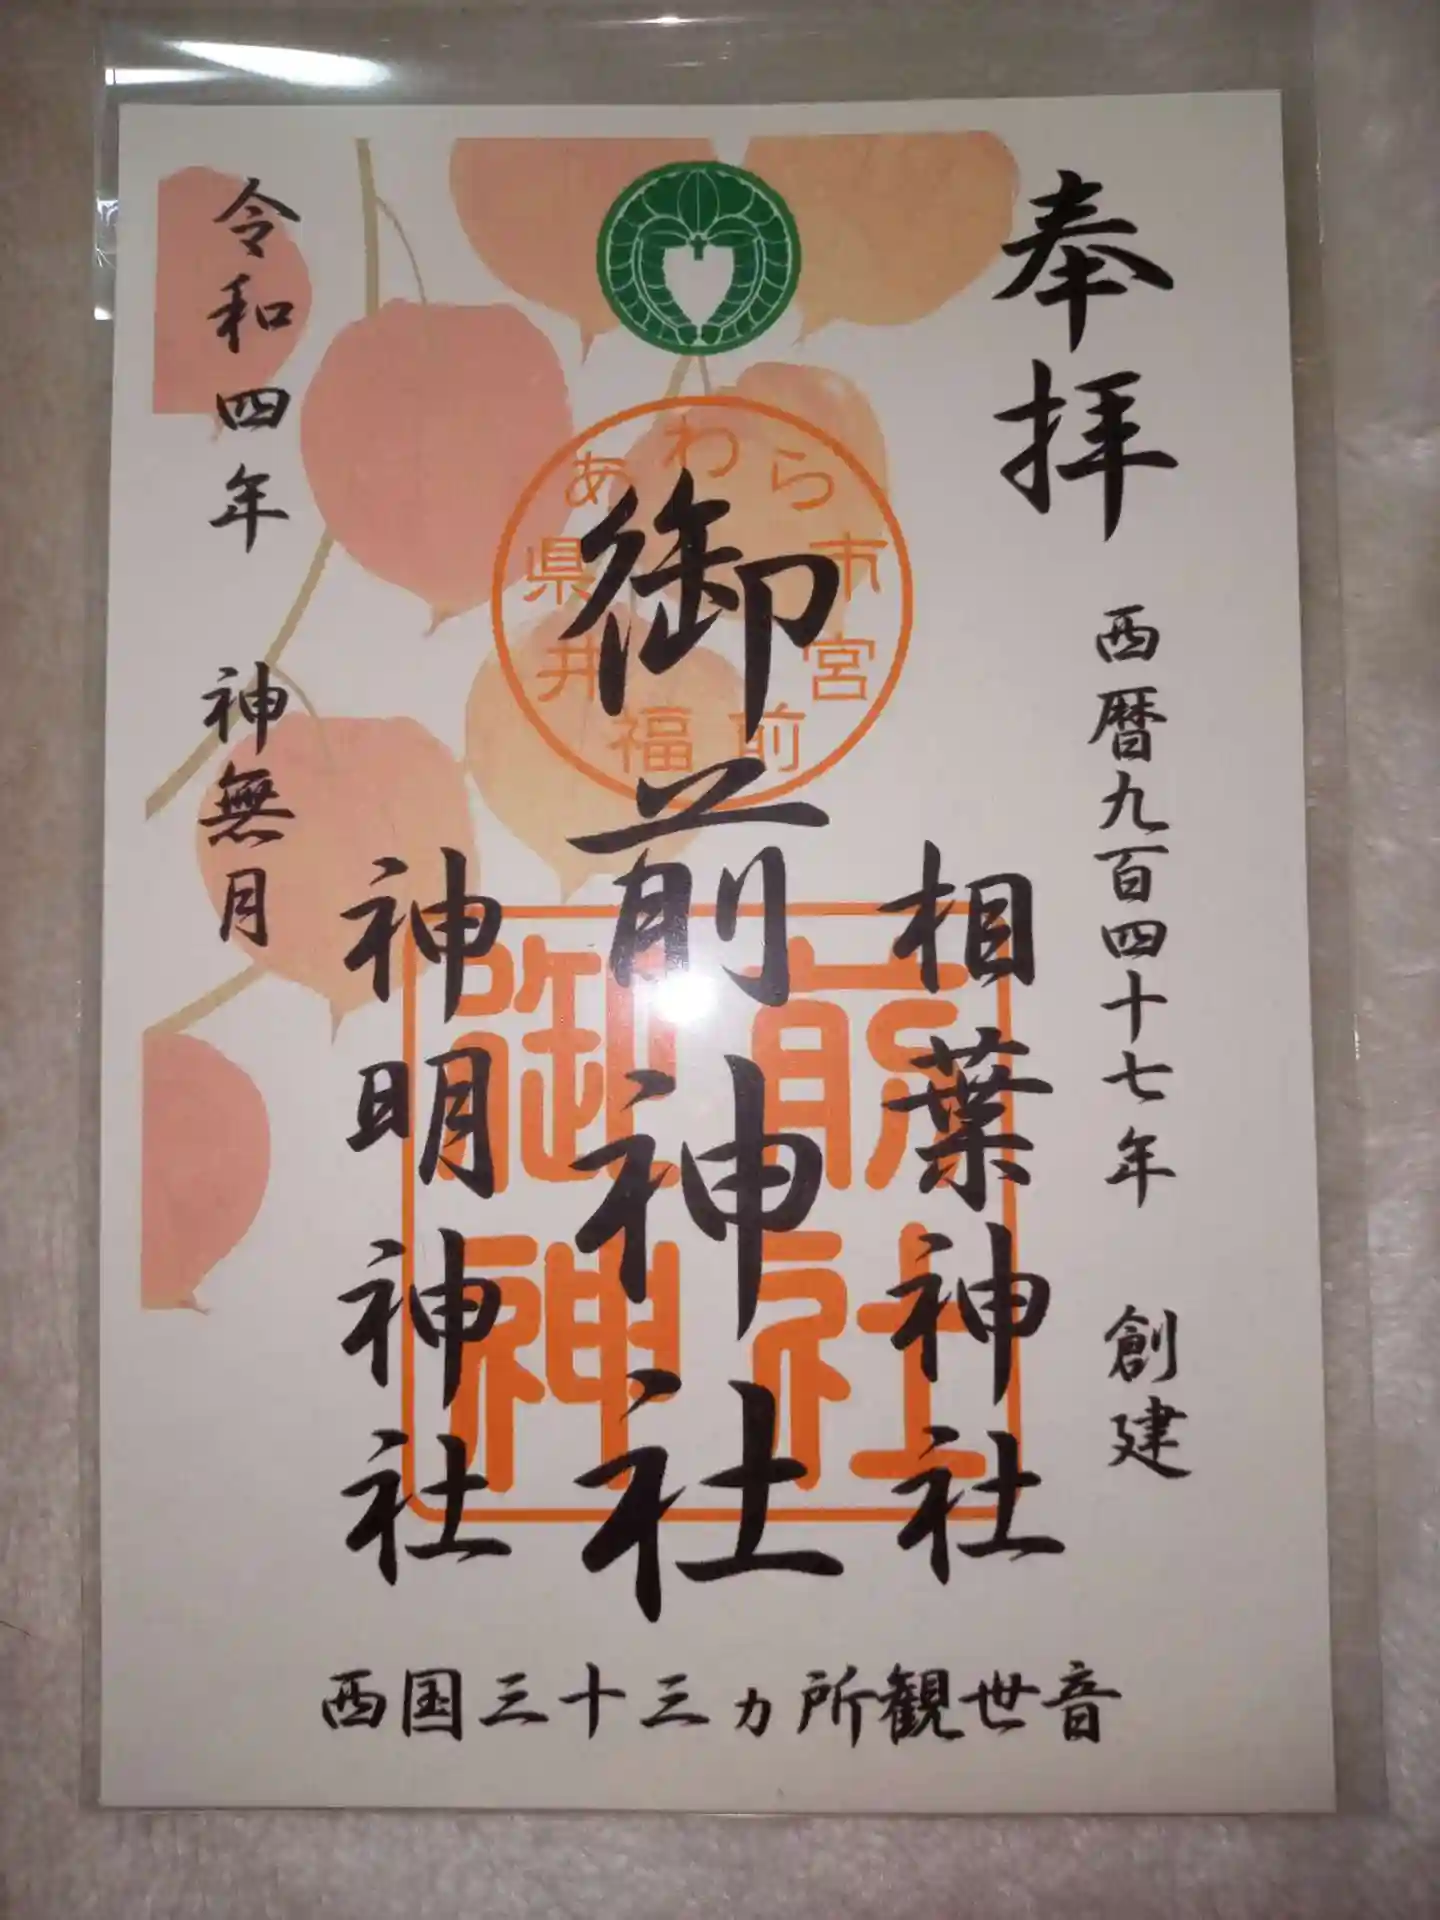 奉拝
西暦九百四十七年 創建
相葉神社
御前神社
神明神社
令和四年 神無月
福井県あわら市宮前
御前神社
西国三十三ヵ所観世音